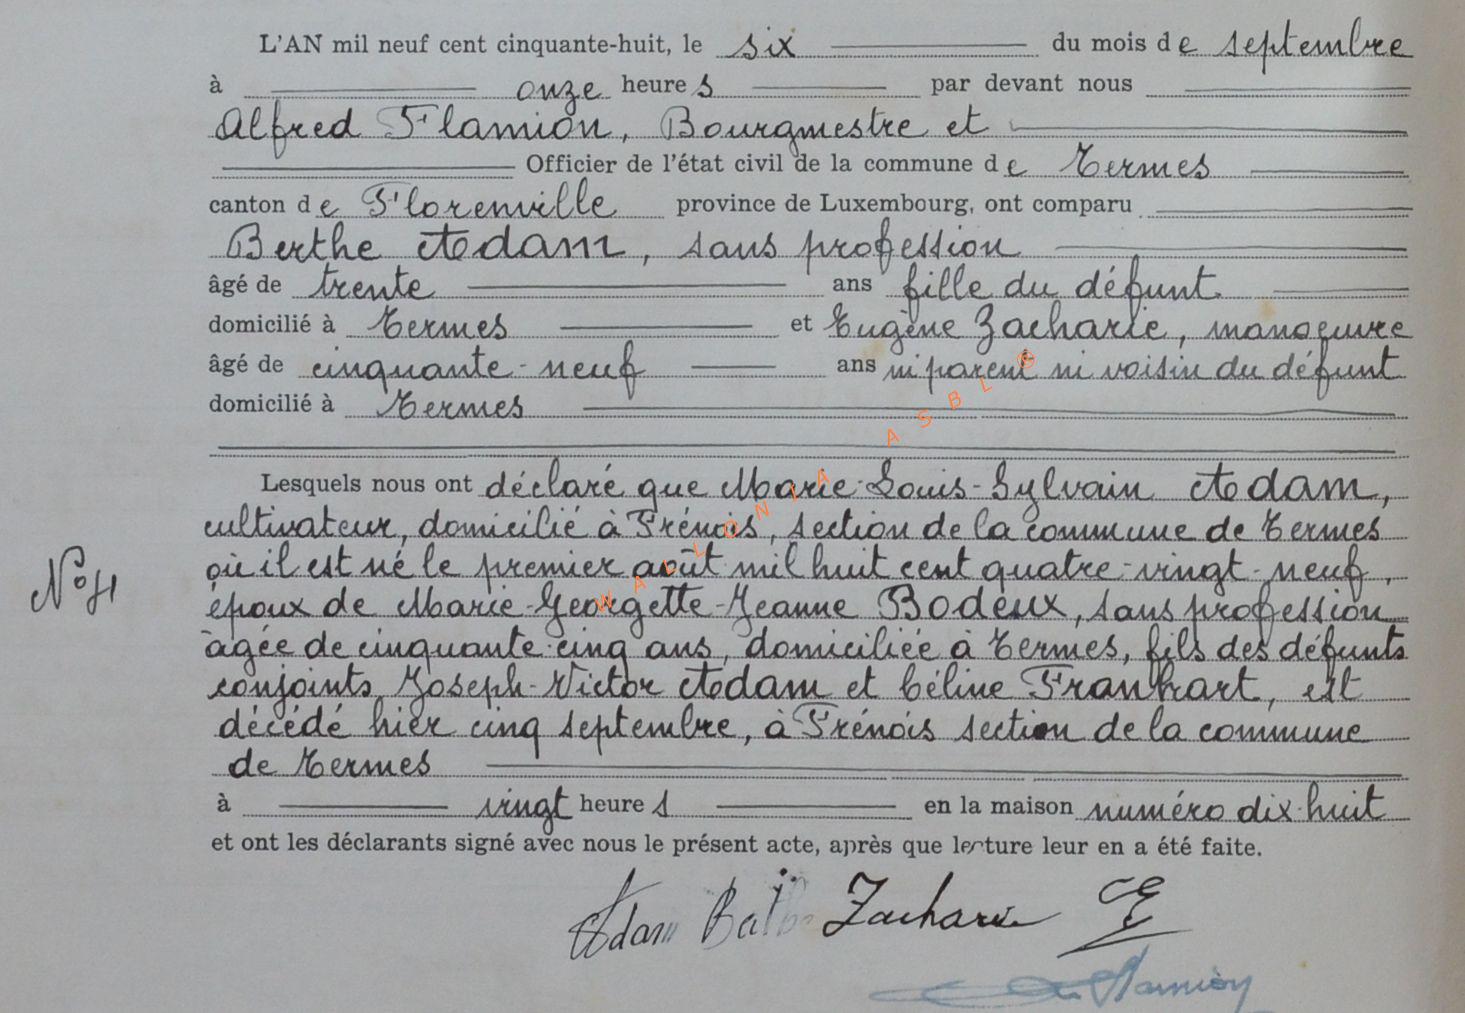 L'AN mil neuf cent cinquante-huit, le six du mois de septembre
à onze heures par devant nous
Alfred Flamion, Bourgmestre et
Officier de l'état civil de la commune de Termes
canton de Florenville province de Luxembourg, ont comparu
Berthe Adam, sans profession
âgé de trente ans fille du défunt
domicilié à Termes et Eugène Zacharie, manoeuvre
âgé de cinquante-neuf ans ni parent ni voisin du défunt
domicilié à Termes
Lesquels nous ont déclaré que Marie-Louis-Sylvain Adam,
cultivateur, domicilié à Frénois, section de la commune de Termes
où il est né le premier août mil huit cent quatre-vingt-neuf,
N°
époux de Marie-Georgette-Jeanne Bodeux, sans profession
âgée de cinquante-cinq ans, domiciliée à Termes, fils des défunts
conjoints Joseph-Victor Adam et Céline Franhart, est
décédé hier cinq septembre, à Frénois section de la commune
de Termes
à vingt heures en la maison numéro dix-huit
et ont les déclarants signé avec nous le présent acte, après que lecture leur en a été faite.
Adam Zacharie E
Flamion
WALLONIA ASBL ©